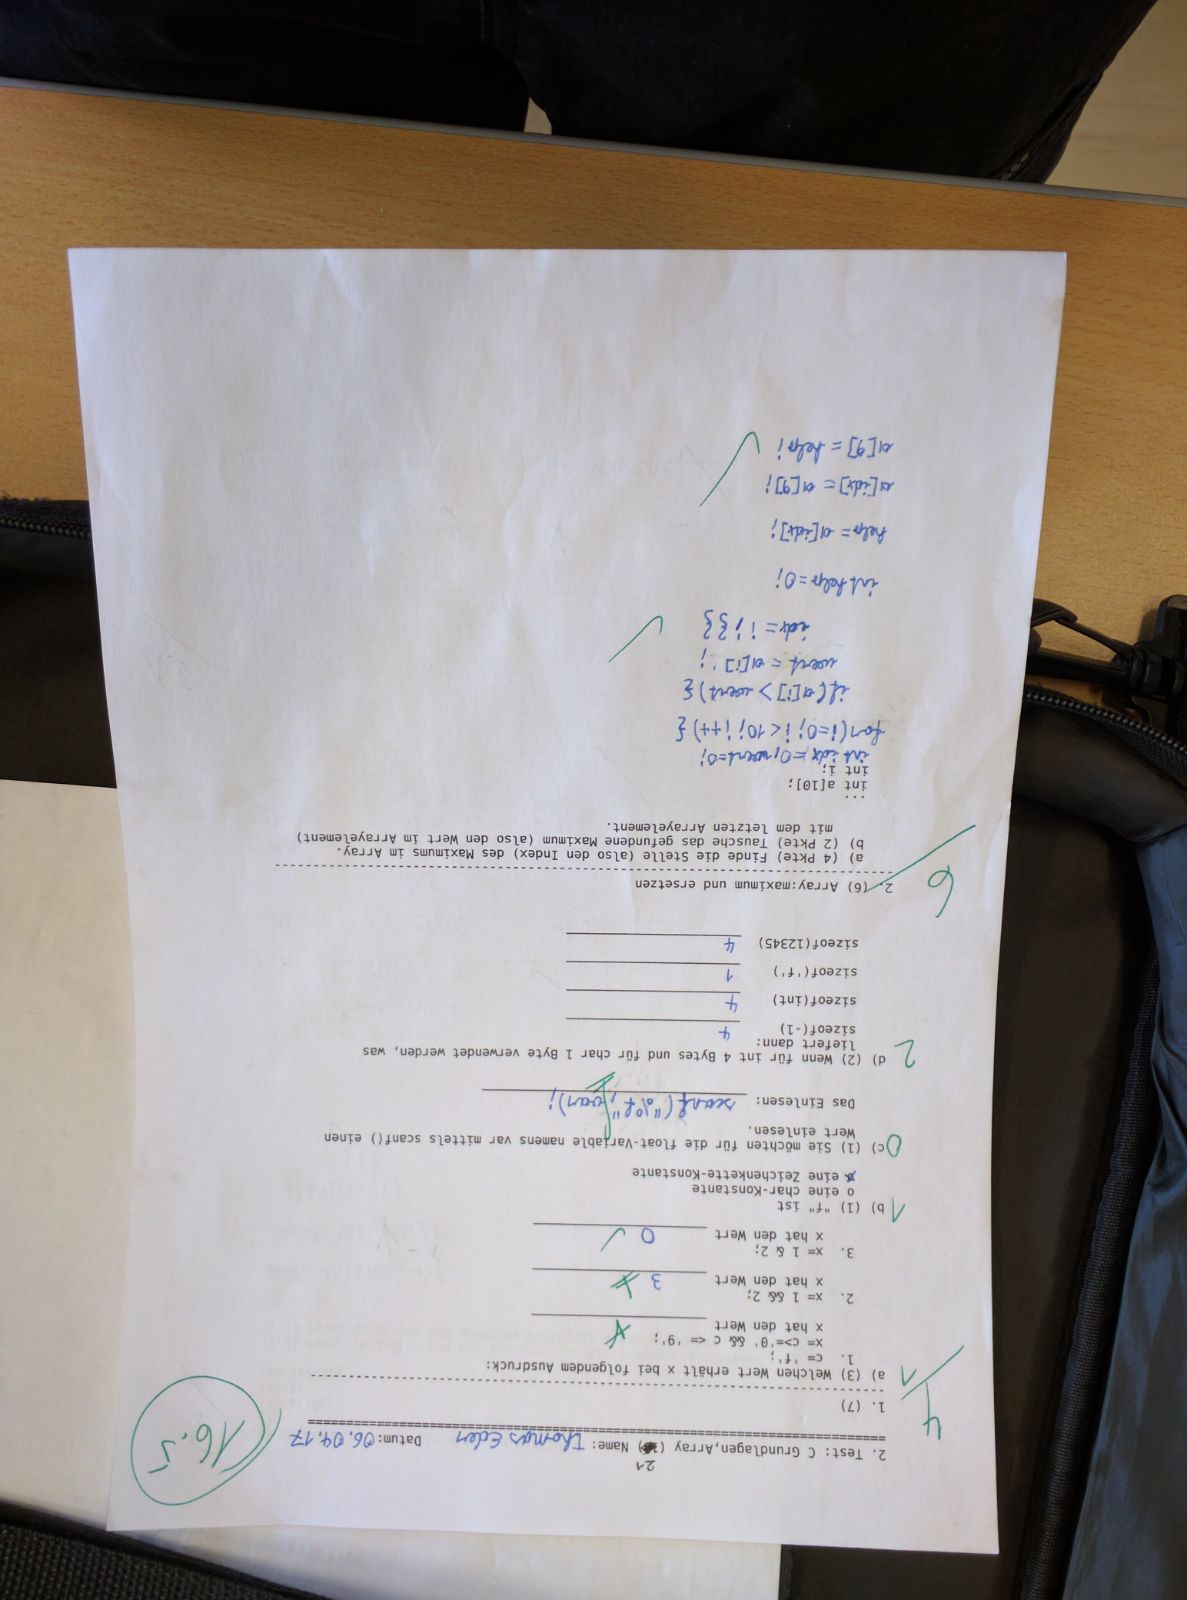 21
2. Test: C Grundlagen,Array ( ) Name: Thomas Eder Datum: 06.04.17
16.5
4
1. (7)
1 a) (3) Welchen Wert erhält x bei folgendem Ausdruck:
1. c= 'f';
x= c>='0' && c <= '9';
x hat den Wert
2. x= 1 && 2;
x hat den Wert 3
3. x= 1 & 2;
x hat den Wert 0 ✓
1 b) (1) "f" ist
o eine char-Konstante
x eine Zeichenkette-Konstante
0 c) (1) Sie möchten für die float-Variable namens var mittels scanf() einen
Wert einlesen.
Das Einlesen: scanf("%f", var);
2 d) (2) Wenn für int 4 Bytes und für char 1 Byte verwendet werden, was
liefert dann:
sizeof(-1) 4
sizeof(int) 4
sizeof('f') 1
sizeof(12345) 4
6
2. (6) Array:maximum und ersetzen
a) (4 Pkte) Finde die Stelle (also den Index) des Maximums im Array.
b) (2 Pkte) Tausche das gefundene Maximum (also den Wert im Arrayelement)
mit dem letzten Arrayelement.
...
int a[10];
int i;
int idx=0, wert=0;
for(i=0; i<10; i++){
if(a[i]>wert){
wert = a[i];
idx= i;}} ✓
int help=0;
help= a[idx];
a[idx]= a[9];
a[9]= help; ✓